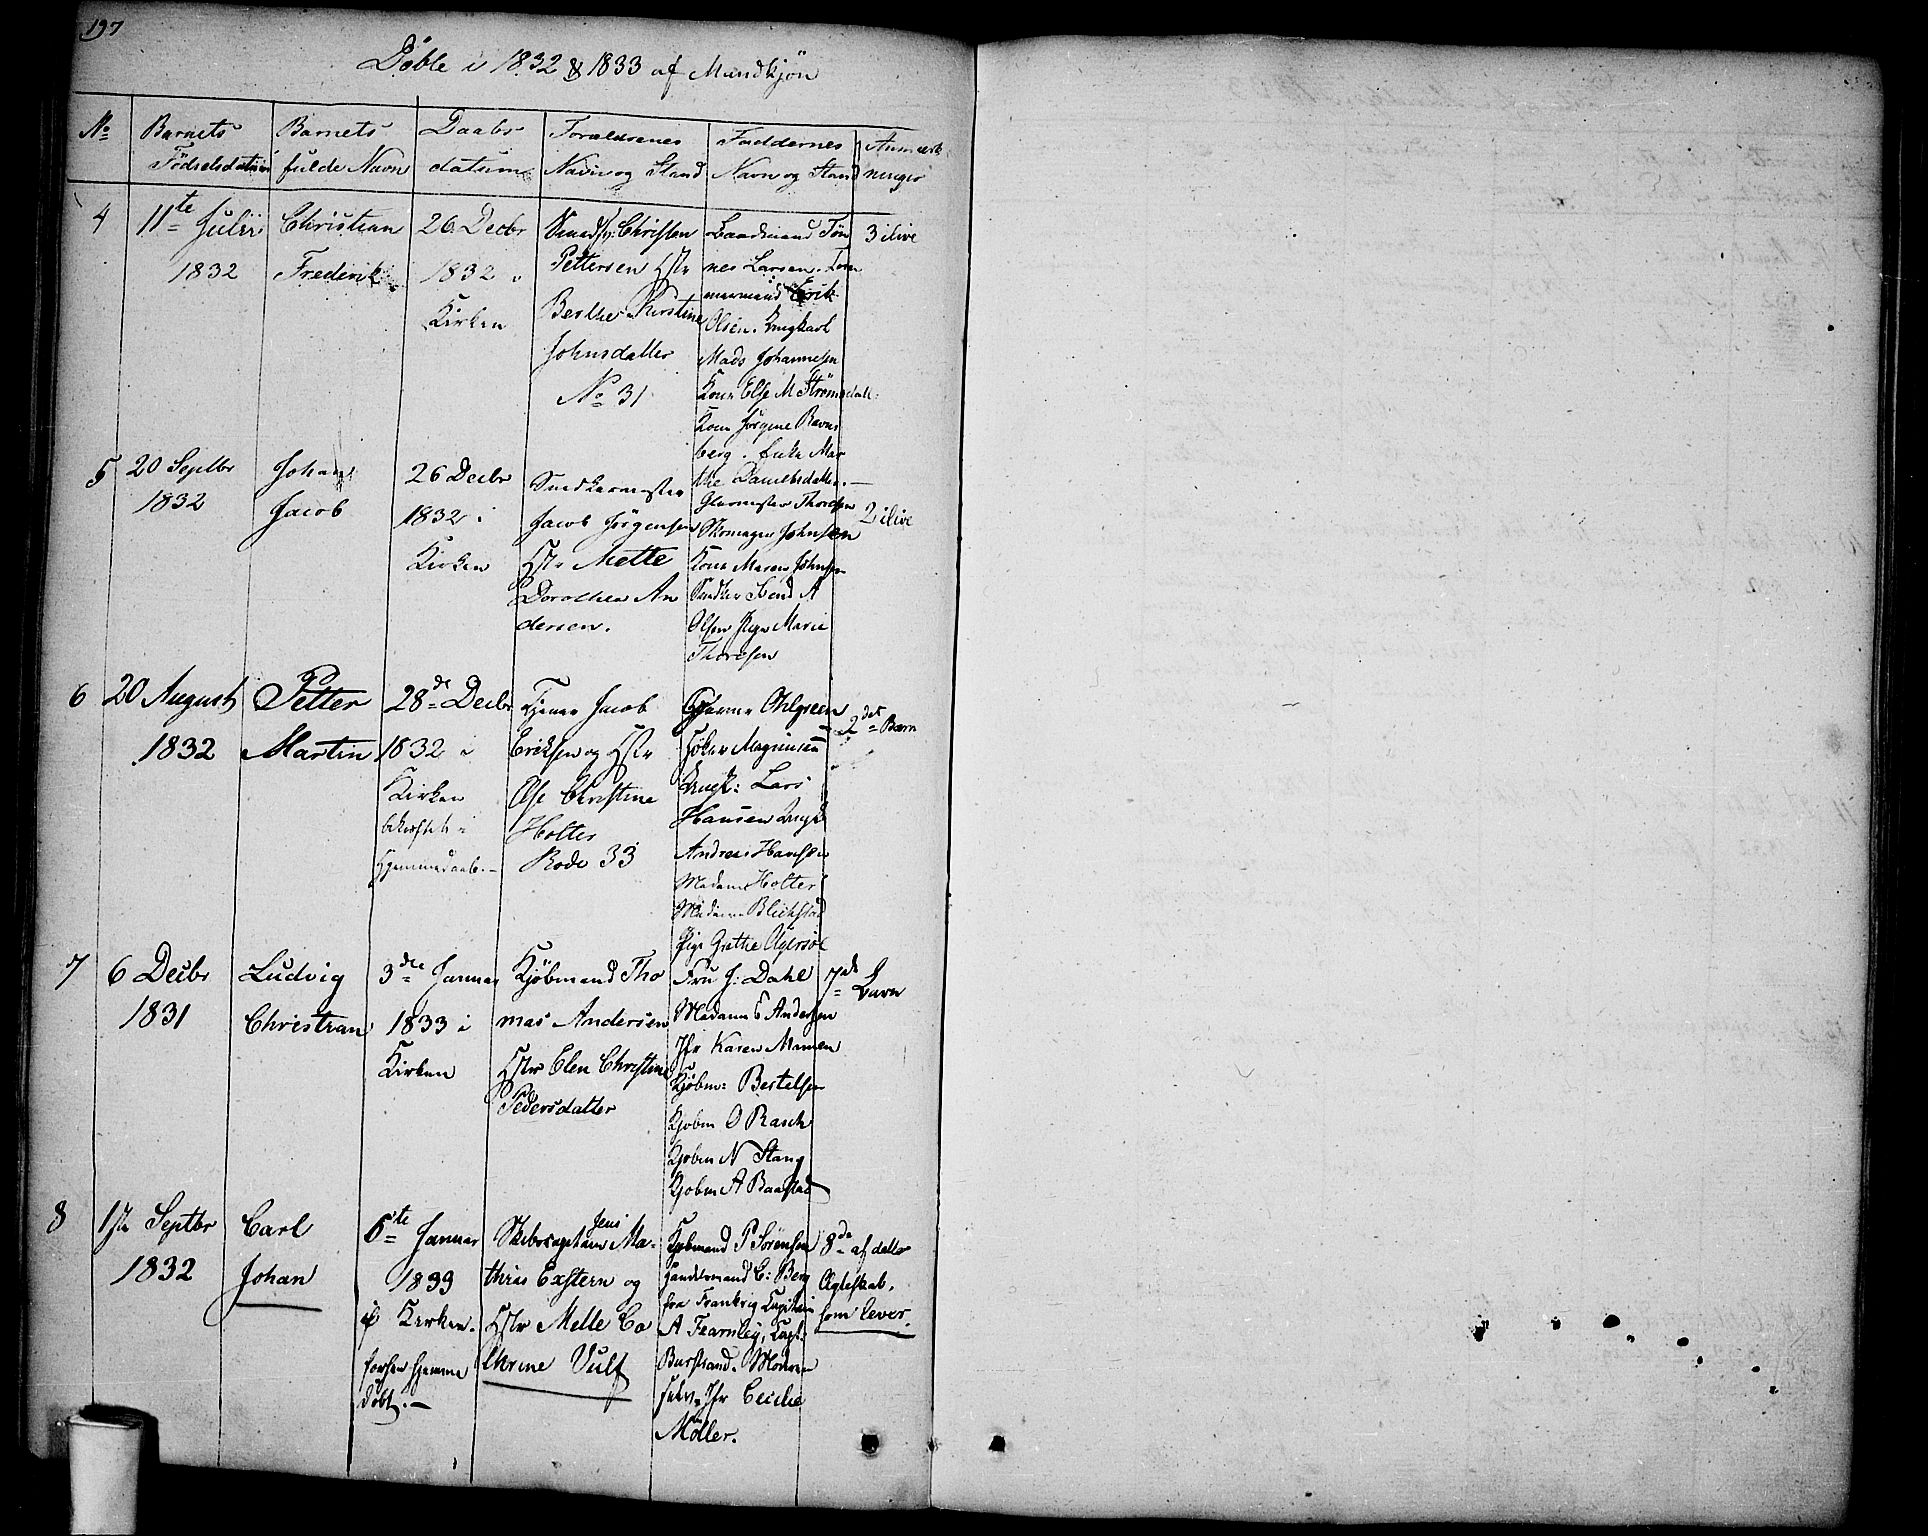 197
Döble i 1832 & 1833 af Mandkjön
No
Barnets
Födselsdatum
Barnets
fulde Navn
Daabs
datum
Forældrenes
Navn og Stand
Faddernes
Navn og Stand
Anmærk
ninger
4
11te Julii
1832
Christian
Frederik
26 Decbr
1832 i
Kirken
Smedsv: Christen
Pettersen Hstr
Berthe Kirstine
Johnsdatter
No 31
Baadsmand Tön
nes Larsen. Tøm
mermand Erik
Olsen. Brugkarl
Mads Johannesen
Kone Else M Strömsdatt:
Kone Jörgine Ravns
berg. Enke Mar
the Danielsdatter. —
3 ilive
5
20 Septbr
1832
Johan
Jacob
26 Decbr
1832 i
Kirken
Snedkermester
Jacob Jörgensen
Hstr Mette
Dorothea An
dersen.
Glarmester Thoresen
Skomager Johnsen
Kone Maren Johnsen
Snedker Svend A
Olsen Pige Marie
Thoresen
2 ilive
6
20 August
1832
Petter
Martin
28de Decbr
1832 i
Kirken
bekræftet i
Hjemmedaab. —
Tjener Jacob
Eriksen og Hstr
Else Christine
Holter
Rode 33
Ohlgreen
Magnusen
Lars
Hansen
Andreas Hansen
Madam Holter
Madame Blichstad
Pige Grethe Agersöe
2det Barn
7
6 Decbr
1831
Ludvig
Christian
3die Januar
1833 i
Kirken
Kjöbmand Tho
mas Andersen
Hstr Elen Christine
Pedersdatter
Fru J: Dahl
Madam S Andersen
Jfr Karen Mamen
Kjöbm: Bertelsen
Kjöbm O Rasch
Kjöbm N Stang
Kjöbm A Baastad
7de Barn
8
1ste Septbr
1832
Carl
Johan
6te Januar
1833
i Kirken.
forhen hjemme
döbt. —
Skibscapitain Jens Ma-
thias Exstern og
Hstr Mette Ca
thrine Vulf
Kjöbmand P Sörensen
Handelsmand C: Berg
fra Frankrig Capitain
A Fearnley, Capt:
Burstrand. Moderen
selv. Jfr Cecilie
Möller.
8de af dette
Ægteskab,
som lever.